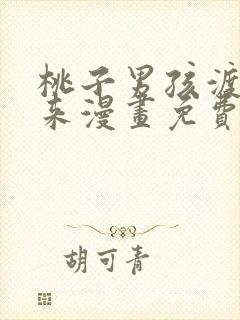 桃子男孩渡
来漫畫免費
胡可青